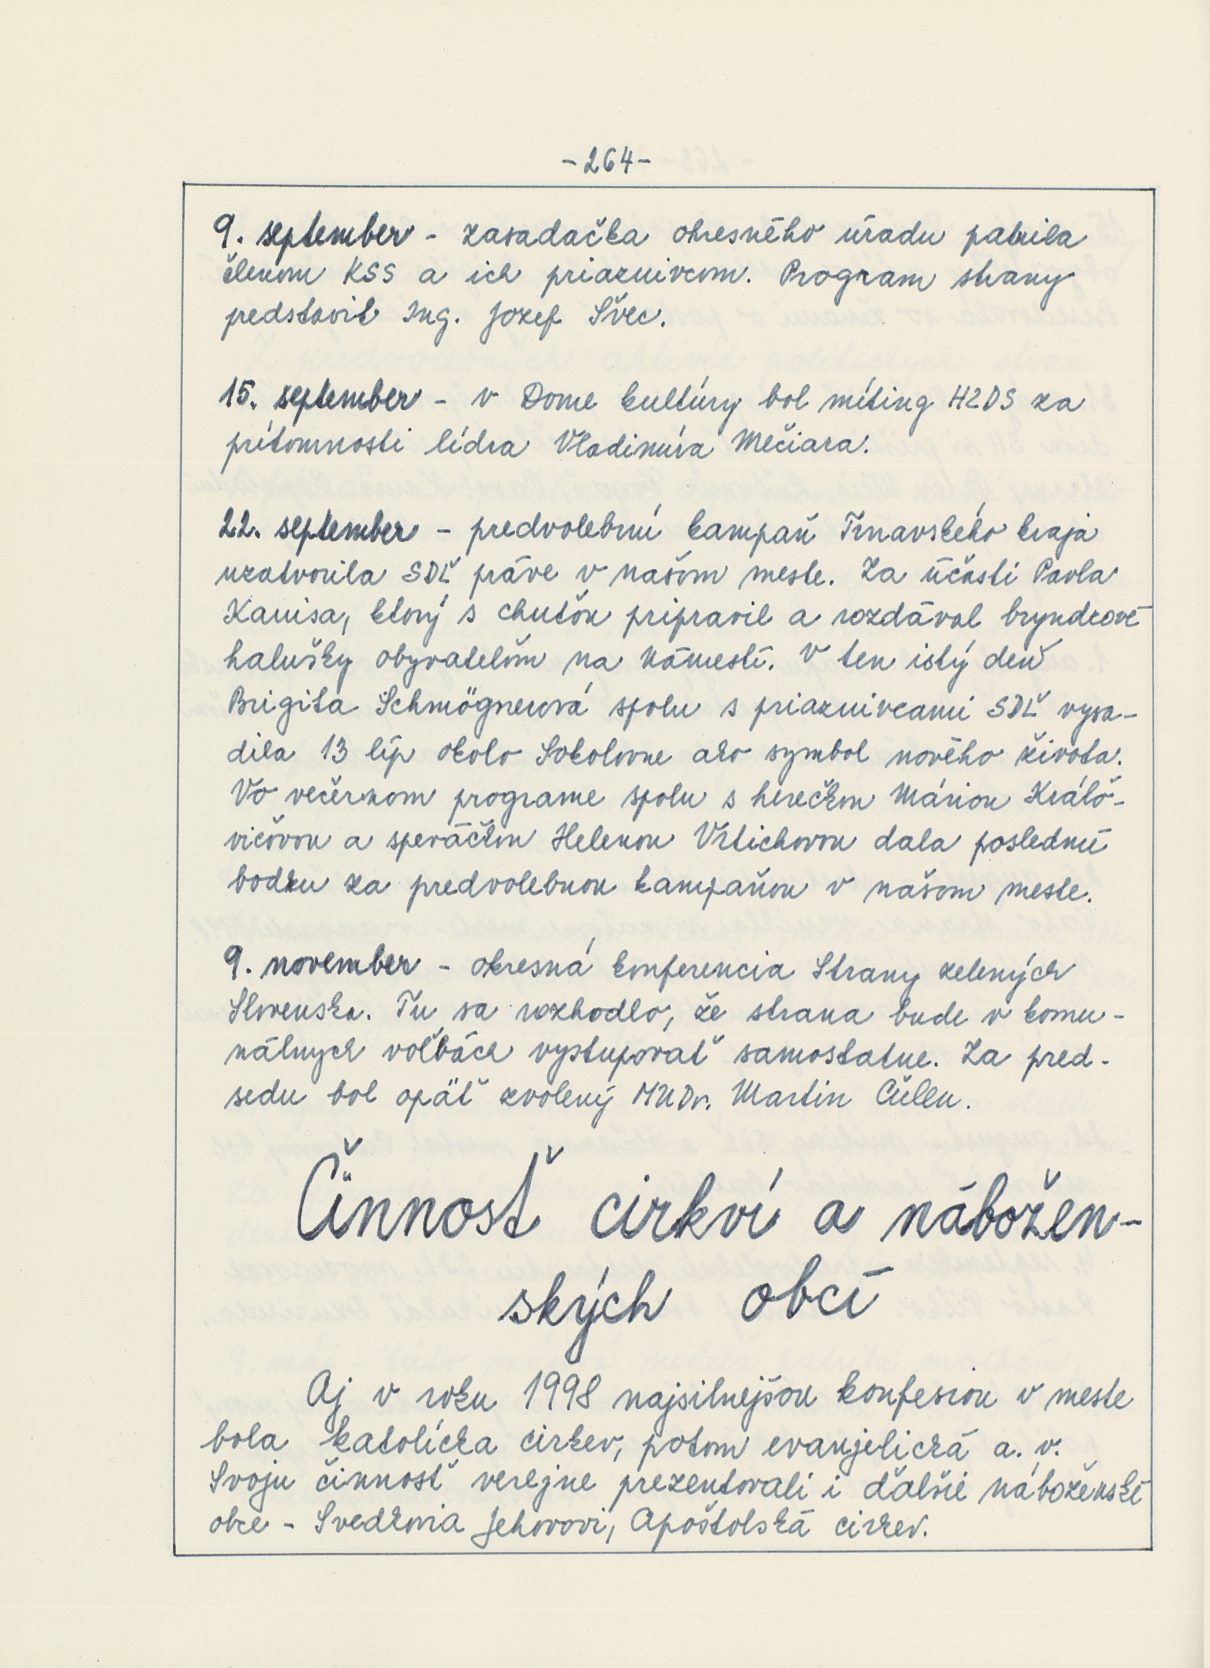 -264-
9. september - zasadačka okresného úradu patrila
členom KSS a ich priaznivcom. Program strany
predstavil Ing. Jozef Švec.
15. september - v Dome kultúry bol míting HZDS za
prítomnosti lídra Vladimíra Mečiara.
22. september - predvolebnú kampaň Trnavského kraja
uzatvorila SDĽ práve v našom meste. Za účasti Pavla
Kanisa, ktorý s chuťou pripravil a rozdával bryndzové
halušky obyvateľom na námestí. V ten istý deň
Brigita Schmögnerová spolu s priaznivcami SDĽ vysa-
dila 13 líp okolo Sokolovne ako symbol nového života.
Vo večernom programe spolu s herečkou Máriou Kráľo-
vičovou a speváčkou Helenou Vrtichovou dala poslednú
bodku za predvolebnou kampaňou v našom meste.
9. november - okresná konferencia Strany zelených
Slovenska. Tu sa rozhodlo, že strana bude v komu-
nálnych voľbách vystupovať samostatne. Za pred-
sedu bol opäť zvolený MUDr. Martin Čúllu.
Činnosť cirkví a nábožen-
ských obcí
Aj v roku 1998 najsilnejšou konfesiou v meste
bola katolícka cirkev, potom evanjelická a. v.
Svoju činnosť verejne prezentovali i ďalšie náboženské
obce - Svedkovia Jehovovi, Apoštolská cirkev.